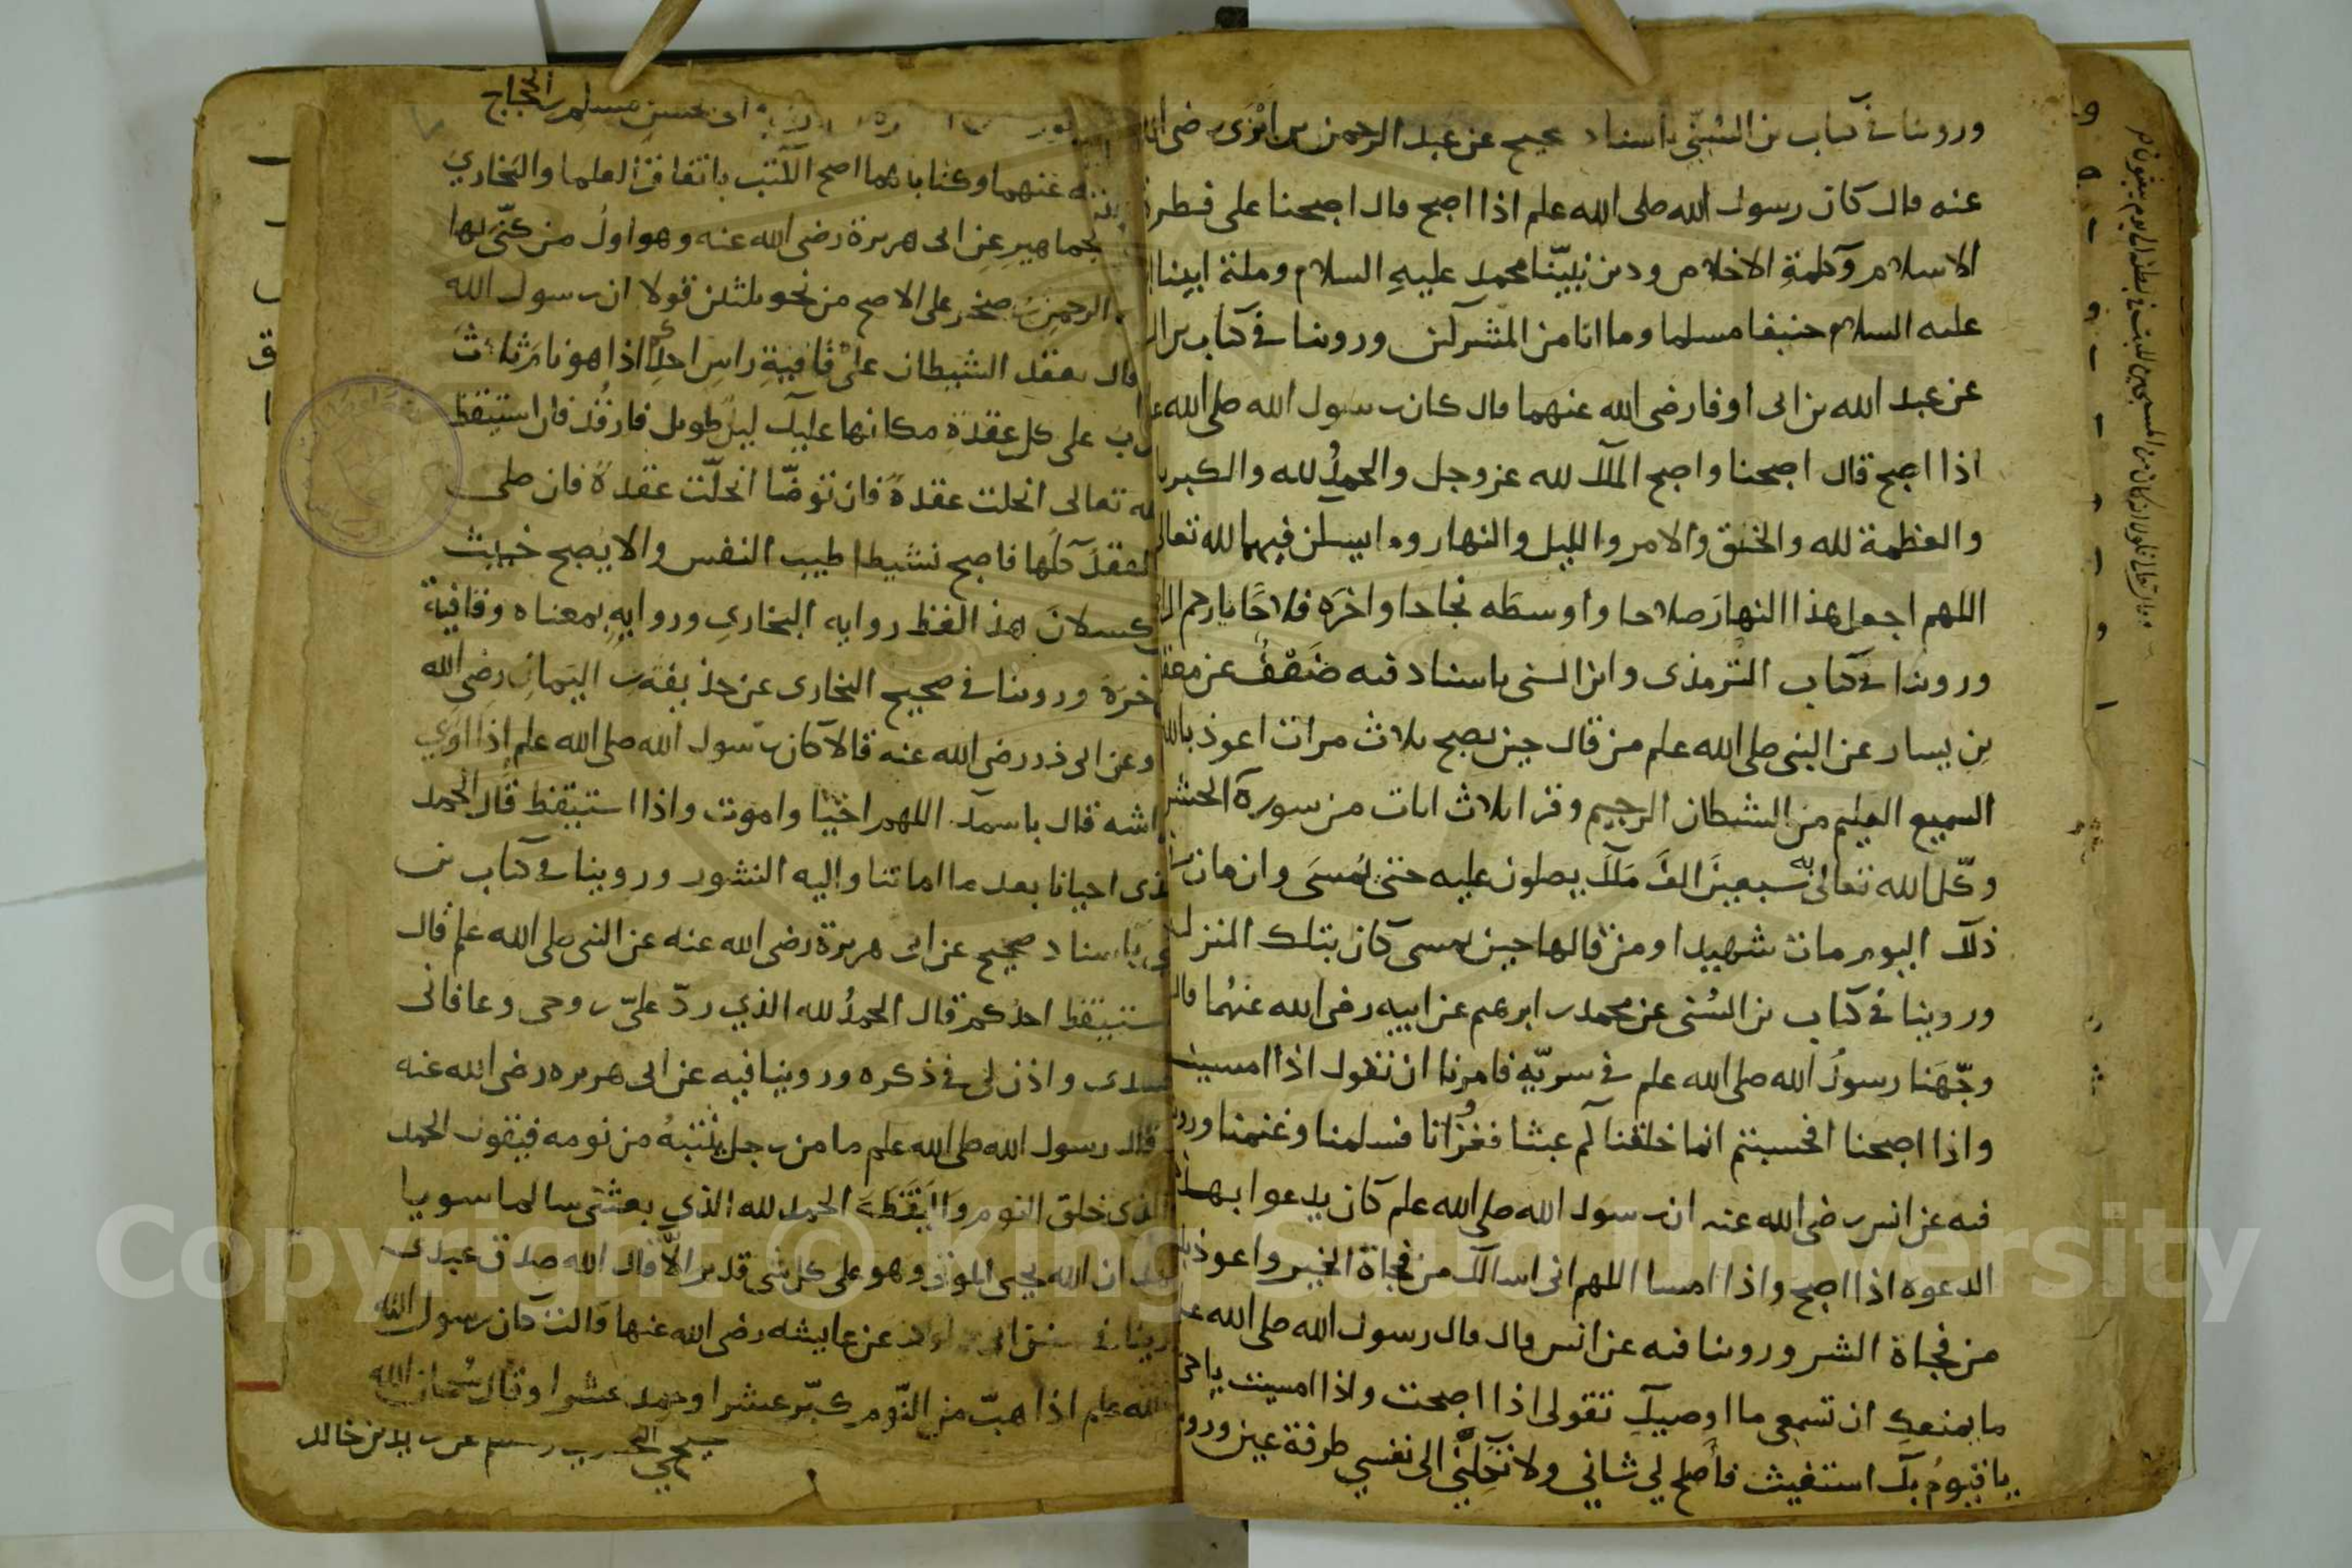 وروينا في كتاب بن السُنّي باسناد صحيح عن عبد الرحمن بن ابْزَى رضى الله
عنه قال كان رسول الله صلى الله علم اذا اصبح قال اصبحنا على فطرة
الاسلام وكلمةِ الاخلاص ودين نبيّنا محمد عليهِ السلام وملة ابينا
عليه السلام حنيفا مسلما وما انا من المشركين وروينا في كتاب بن ال
عن عبد الله بن ابى اوفا رضى الله عنهما قال كان رسول الله صلى الله
اذا اصبح قال اصبحنا واصبح الملك لله عز وجل والحمدُ لله والكبريا
والعظمة لله والخلق والامر والليل والنهار وما يسكن فيهما لله تعالى
اللهم اجعل هذا النهارَ صلاحا واوسطَه نجاحا واخرَه فلاحًا يا ارحم الرا
وروينا في كتاب الترمذى وابن السنى باسناد فيه ضَعْفٌ عن معقل
بن يسار عن النبى صلى الله علم من قال حين يصبح ثلاث مرات اعوذ بالله
السميع العليم من الشيطان الرجيم وقرا ثلاث ايات من سورة الحشر
وكّل الله تعالى به سبعينَ الفَ مَلَك يصلون عليه حتى يُمسَى وان مات
ذلك اليوم مات شهيدا ومن قالها حين يمسى كان بتلك المنزلة
وروينا في كتاب بن السُنى عن محمد بن ابرهيم عن ابيه رضى الله عنهُما قال
وجّهَنا رسولُ الله صلى الله علم في سريّهِ فامرنا ان نقول اذا امسينا
واذا اصبحنا افحسبتم انما خلقناكم عبثا فقرُانا فسلمنا وغنمنا وروينا
فيه عن انس رضى الله عنه ان رسول الله صلى الله علم كان يدعوا بهذه
الدعوه اذا اصبح واذا امسا اللهم انى اسالك من فجاة الخير واعوذ بك
من فجاة الشر وروينا فيه عن انس قال قال رسول الله صلى الله
ما يمنعكِ ان تسمعي ما اوصيكِ تقولى اذا اصبحت واذا امسيت يا حي
يا قيومُ بك استغيث فأصلح لي شاني ولا تكِلْني الى نفسي طرفة عين وروينا
ابى حسين مسلم بن الحجاج
عنهما وكتاباهما اصح الكتب باتفاق العلما والبخاري
جماهيرِ عن ابى هريرة رضى الله عنه وهو اولُ من كنّى بها
الرحمن بن صخر على الاصح من نحو ثلثين قولا ان رسول الله
قال يعقد الشيطان على قافيةِ راسِ احدِكم اذا هو نام ثلاث
على كل عقدة مكانها عليك ليل طويل فارقُد فان استيقظ
الله تعالى انحلت عقدةٌ فان توضّا انحلّت عقدةٌ فان صلى
عقدُه كلُها فاصبح نشيطا طيب النفس والا يصبح خبيث
كسلانَ هذا لفظ روايه البخاري وروايهِ بمعناه وقافية
اخرَهُ وروينا في صحيح البخارى عن حذيفة بن اليَمانِ رضى الله
وعن ابى ذر رضى الله عنه قالا كان رسول الله صلى الله علم اذا اوى
فراشه قال باسمك اللهم احْيَا واموت واذا استيقظ قال الحمد
الذى احيانا بعد ما اماتنا واليه النشور وروينا في كتاب بن
باسناد صحيح عن ابى هريرة رضى الله عنه عن النبى صلى الله علم قال
استيقظ احدُكم قال الحمدُ لله الذي ردّ عليّ روحى وعافانى
جسدى واذن لى في ذكره وروينا فيه عن ابى هريره رضى الله عنه
قال رسول الله صلى الله علم ما من رجل ينتبهُ من نومه فيقول الحمد
الذى خلق النوم واليَقَظَةَ الحمد لله الذي بعثنى سالما سويا
اشهد ان الله يحيى الموتى وهو على كل شى قدير الّا قال الله صدق عبدى
وروينا في سنن ابى داود عن عايشه رضى الله عنها قالت كان رسول الله
الله علم اذا هبّ من النّوم كبّر عشرا وحمد عشرا وقال سُبحان الله
بن خالد
Copyright © King Saud University